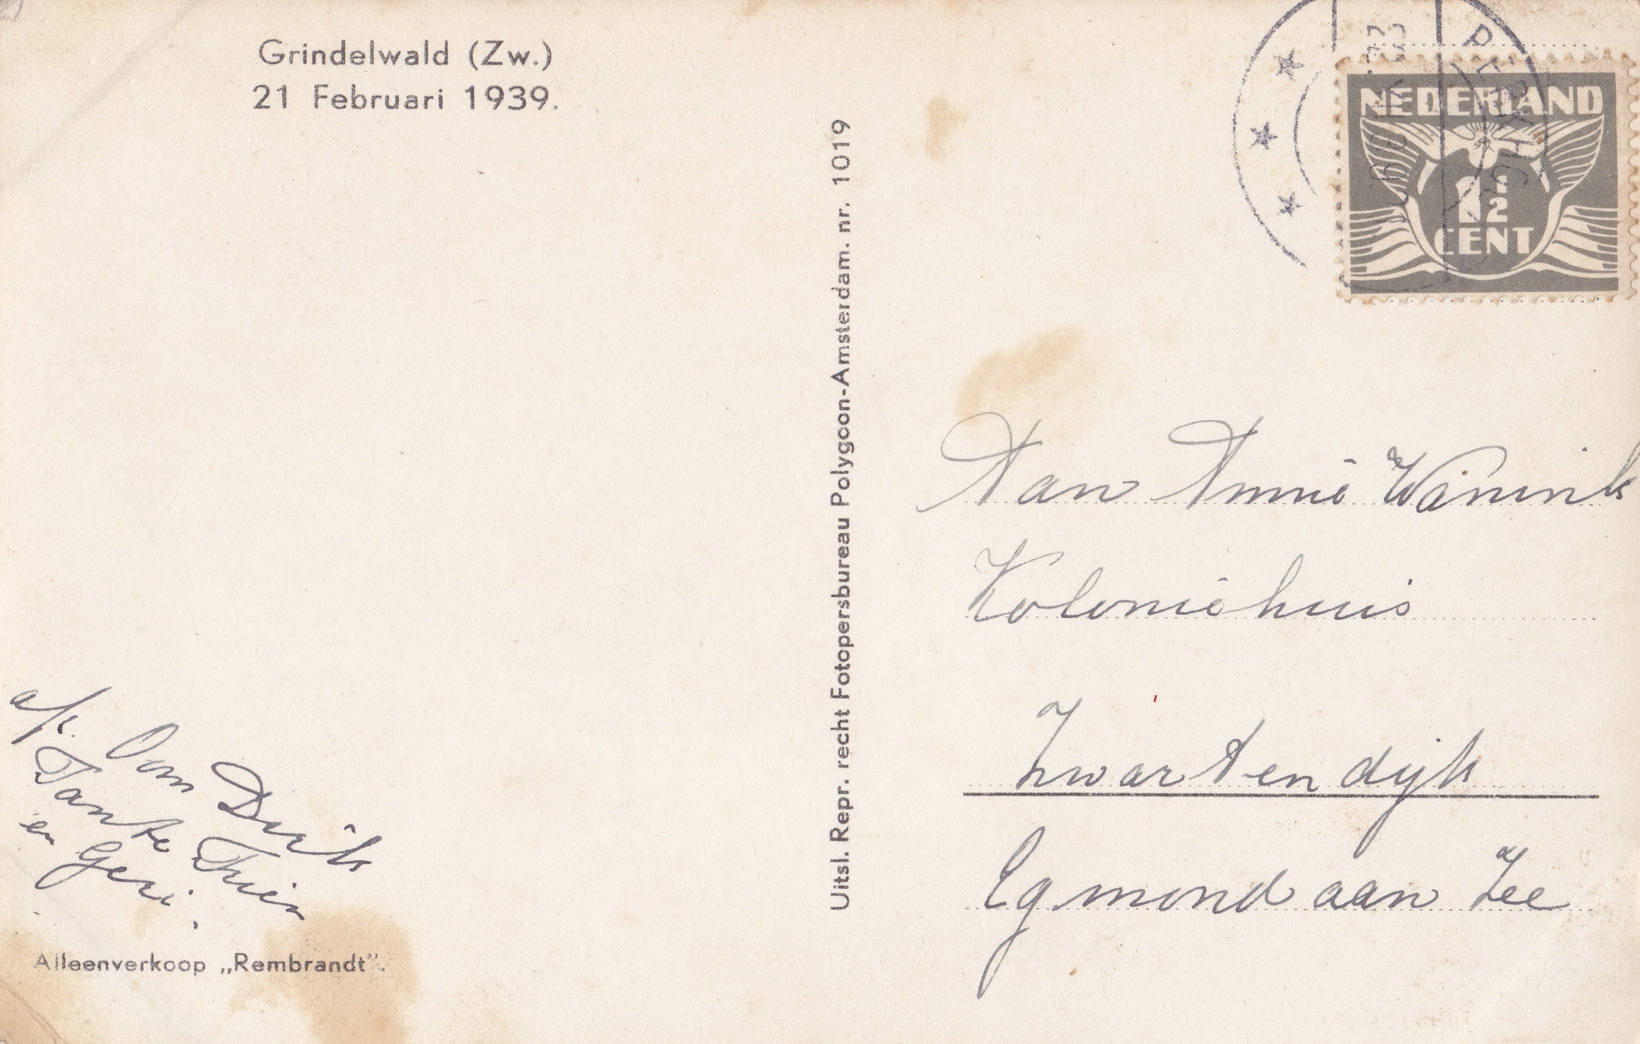 Grindelwald (Zw.)
21 Februari 1939.
Uitsl. Repr. recht Fotopersbureau Polygoon-Amsterdam. nr. 1019
NEDERLAND
1½
CENT
Aan Annie Wanink
Koloniehuis
Zwartendijk
Egmond aan Zee
af. Oom Derik
Tante Trien
en Geri.
Alleenverkoop „Rembrandt”.